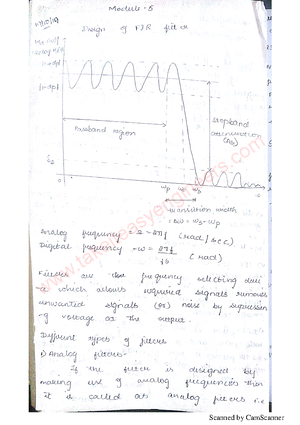 Module - 5
Design of FIR filter
(1+δp)
(1-δp)
Passband region
stopband
attenuation
(δs)
0
ωp
ωs
transition width
ω = ωs - ωp
Analog frequency = Ω = 2πf (rad/sec)
Digital frequency = ω = 2πf (rad)
fs
Filters are the frequency selecting devi
-ce which allows required signals removes
unwanted signals (or) noise by supression
of voltage at the output.
Different types of filters
1) Analog filters:-
If the filter is designed by
making use of analog frequencies then
it is called as analog filters i.e
www.takeiteasyengineers.com
Scanned by CamScanner